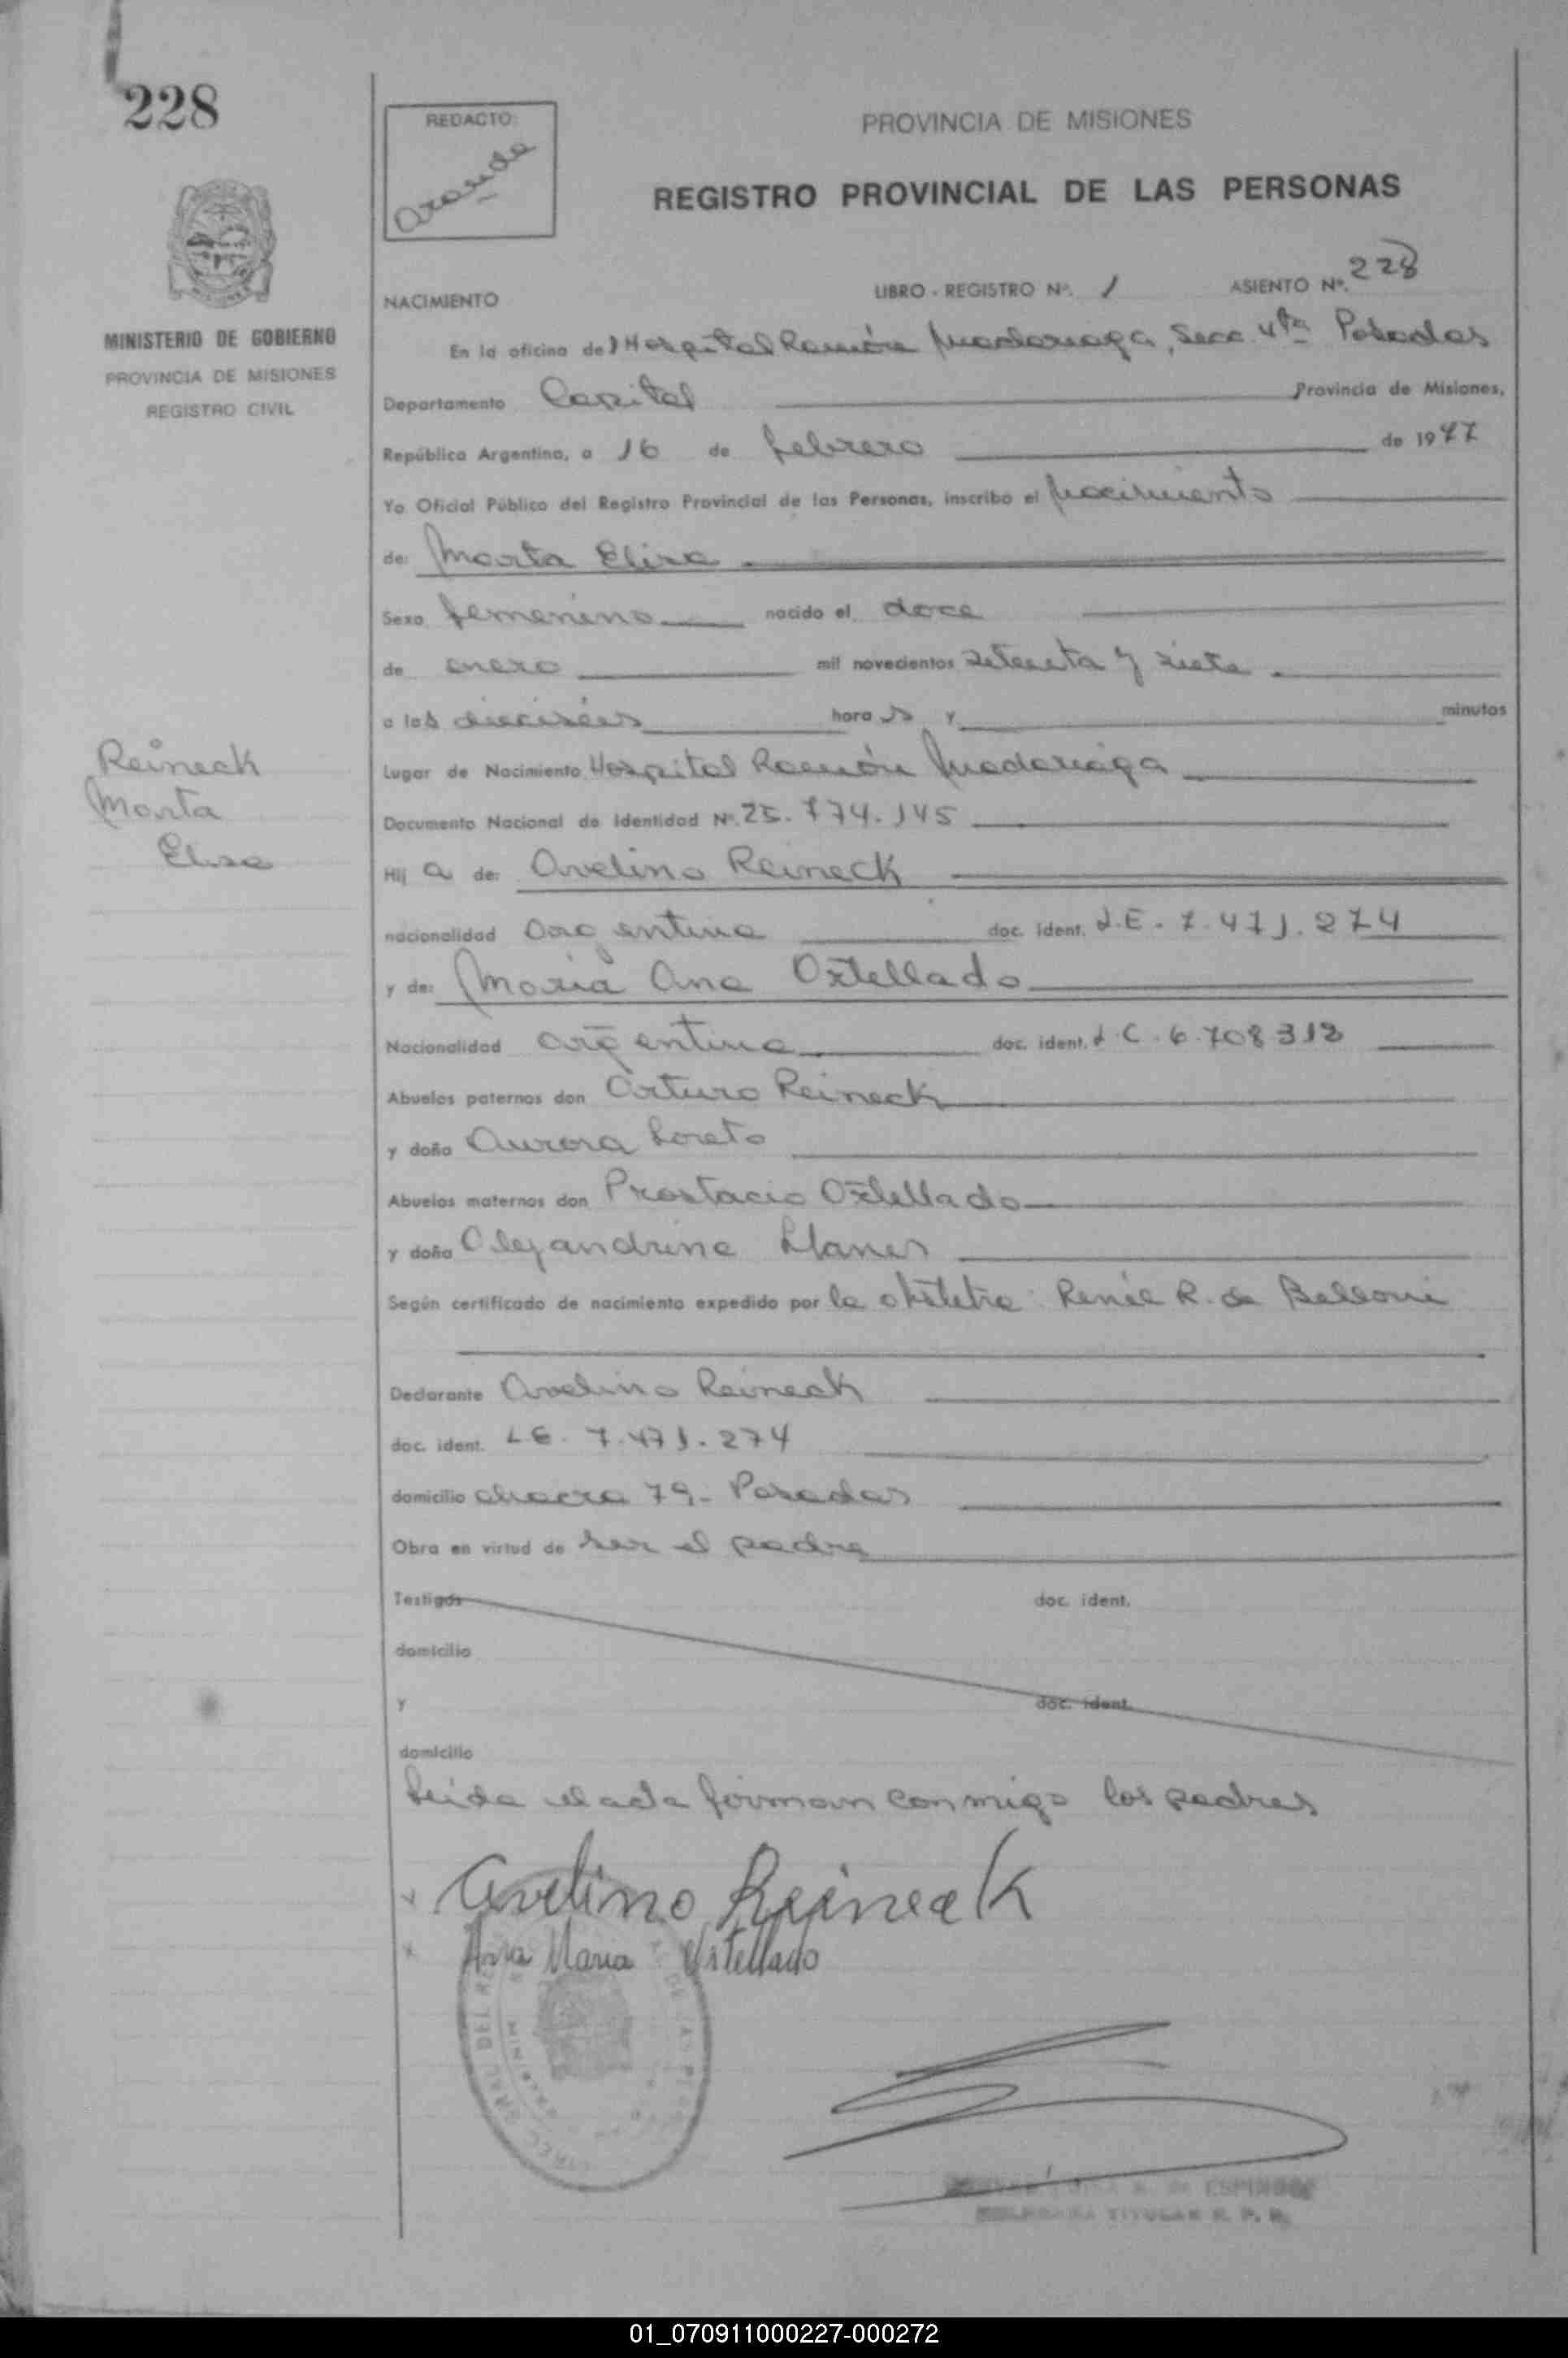 228
REDACTO:
Aranda
PROVINCIA DE MISIONES
REGISTRO PROVINCIAL DE LAS PERSONAS
MINISTERIO DE GOBIERNO
PROVINCIA DE MISIONES
REGISTRO CIVIL
NACIMIENTO LIBRO - REGISTRO Nº. 1 ASIENTO Nº. 228
En la oficina del Hospital Ramón Madariaga, Secc. 4ta Posadas
Departamento Capital Provincia de Misiones,
República Argentina, a 16 de febrero de 1977
Yo Oficial Público del Registro Provincial de las Personas, inscribo el nacimiento
de: Marta Elisa
Sexo femenino nacido el doce
de enero mil novecientos setenta y siete
a las dieciséis horas y minutos
Reineck
Marta
Elisa
Lugar de Nacimiento Hospital Ramón Madariaga
Documento Nacional de Identidad Nº. 25.774.145
Hij a de: Avelino Reineck
nacionalidad argentina doc. ident. L.E. 7.471.274
y de: María Ana Ortellado
Nacionalidad argentina doc. ident. L.C. 6.708.312
Abuelos paternos don Arturo Reineck
y doña Aurora Loreto
Abuelos maternos don Prostacio Ortellado
y doña Alejandrina Llanes
Según certificado de nacimiento expedido por la obstetra Renée R. de Belloni
Declarante Avelino Reineck
doc. ident. L.E. 7.471.274
domicilio chacra 79 - Posadas
Obra en virtud de ser el padre
Testigos doc. ident.
domicilio
y doc. ident.
domicilio
Leida el acta firman conmigo los padres
x Avelino Reineck
x Ana Maria Ortellado
ESPINOSA
TITULAR R. P. P.
01_070911000227-000272